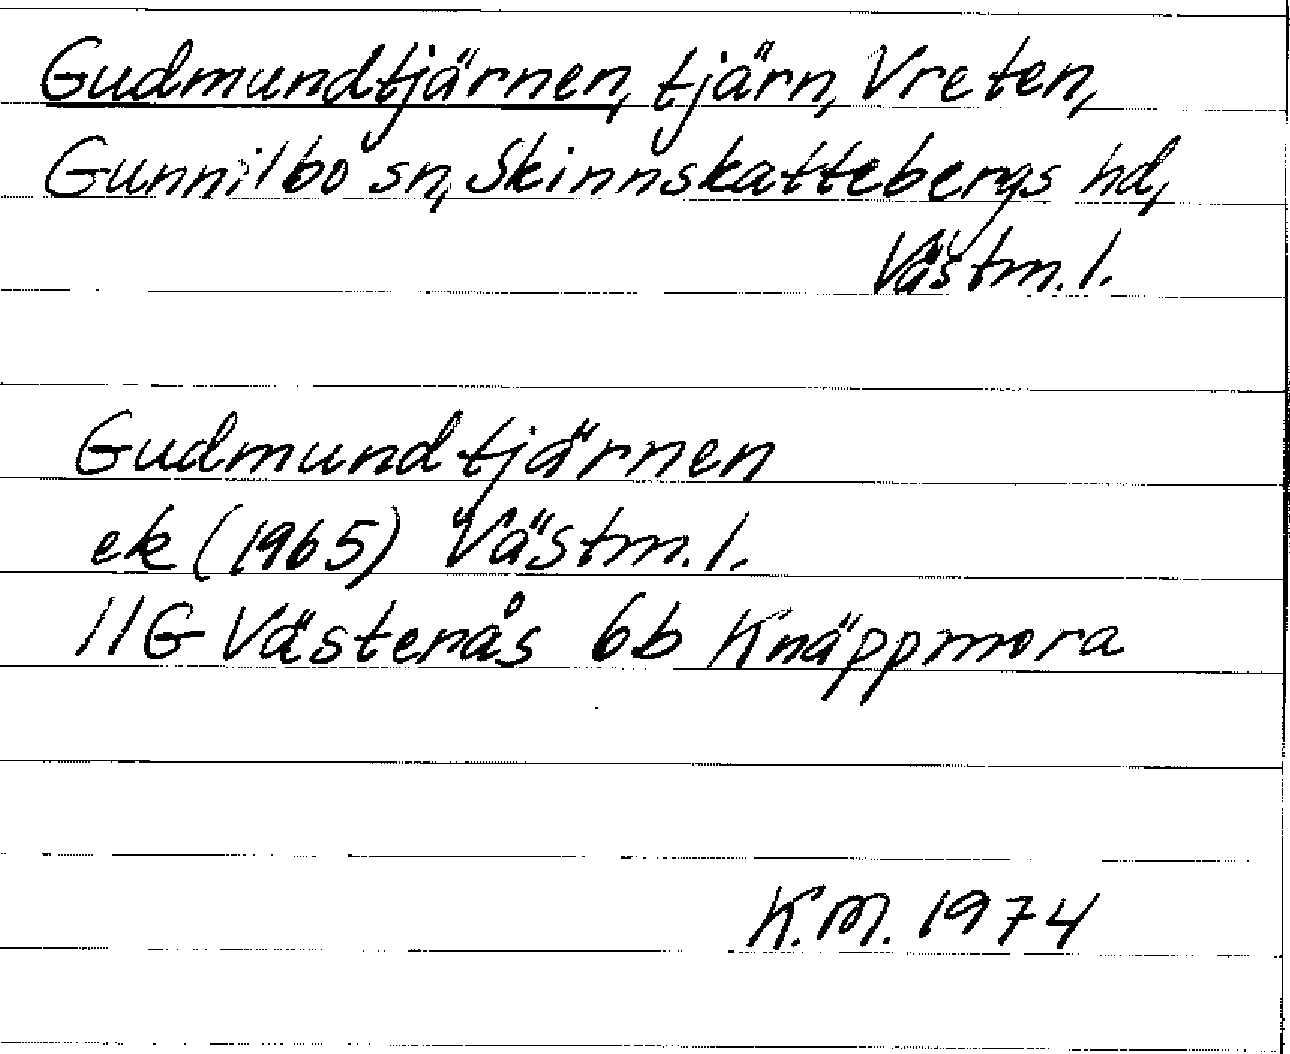 Gudmundtjärnen, tjärn, Vreten,
Gunnilbo sn, Skinnskattebergs hd,
Västm. l.
Gudmundtjärnen
ek (1965) Västm. l.
11G Västerås 6b Knäppmora
K.M. 1974